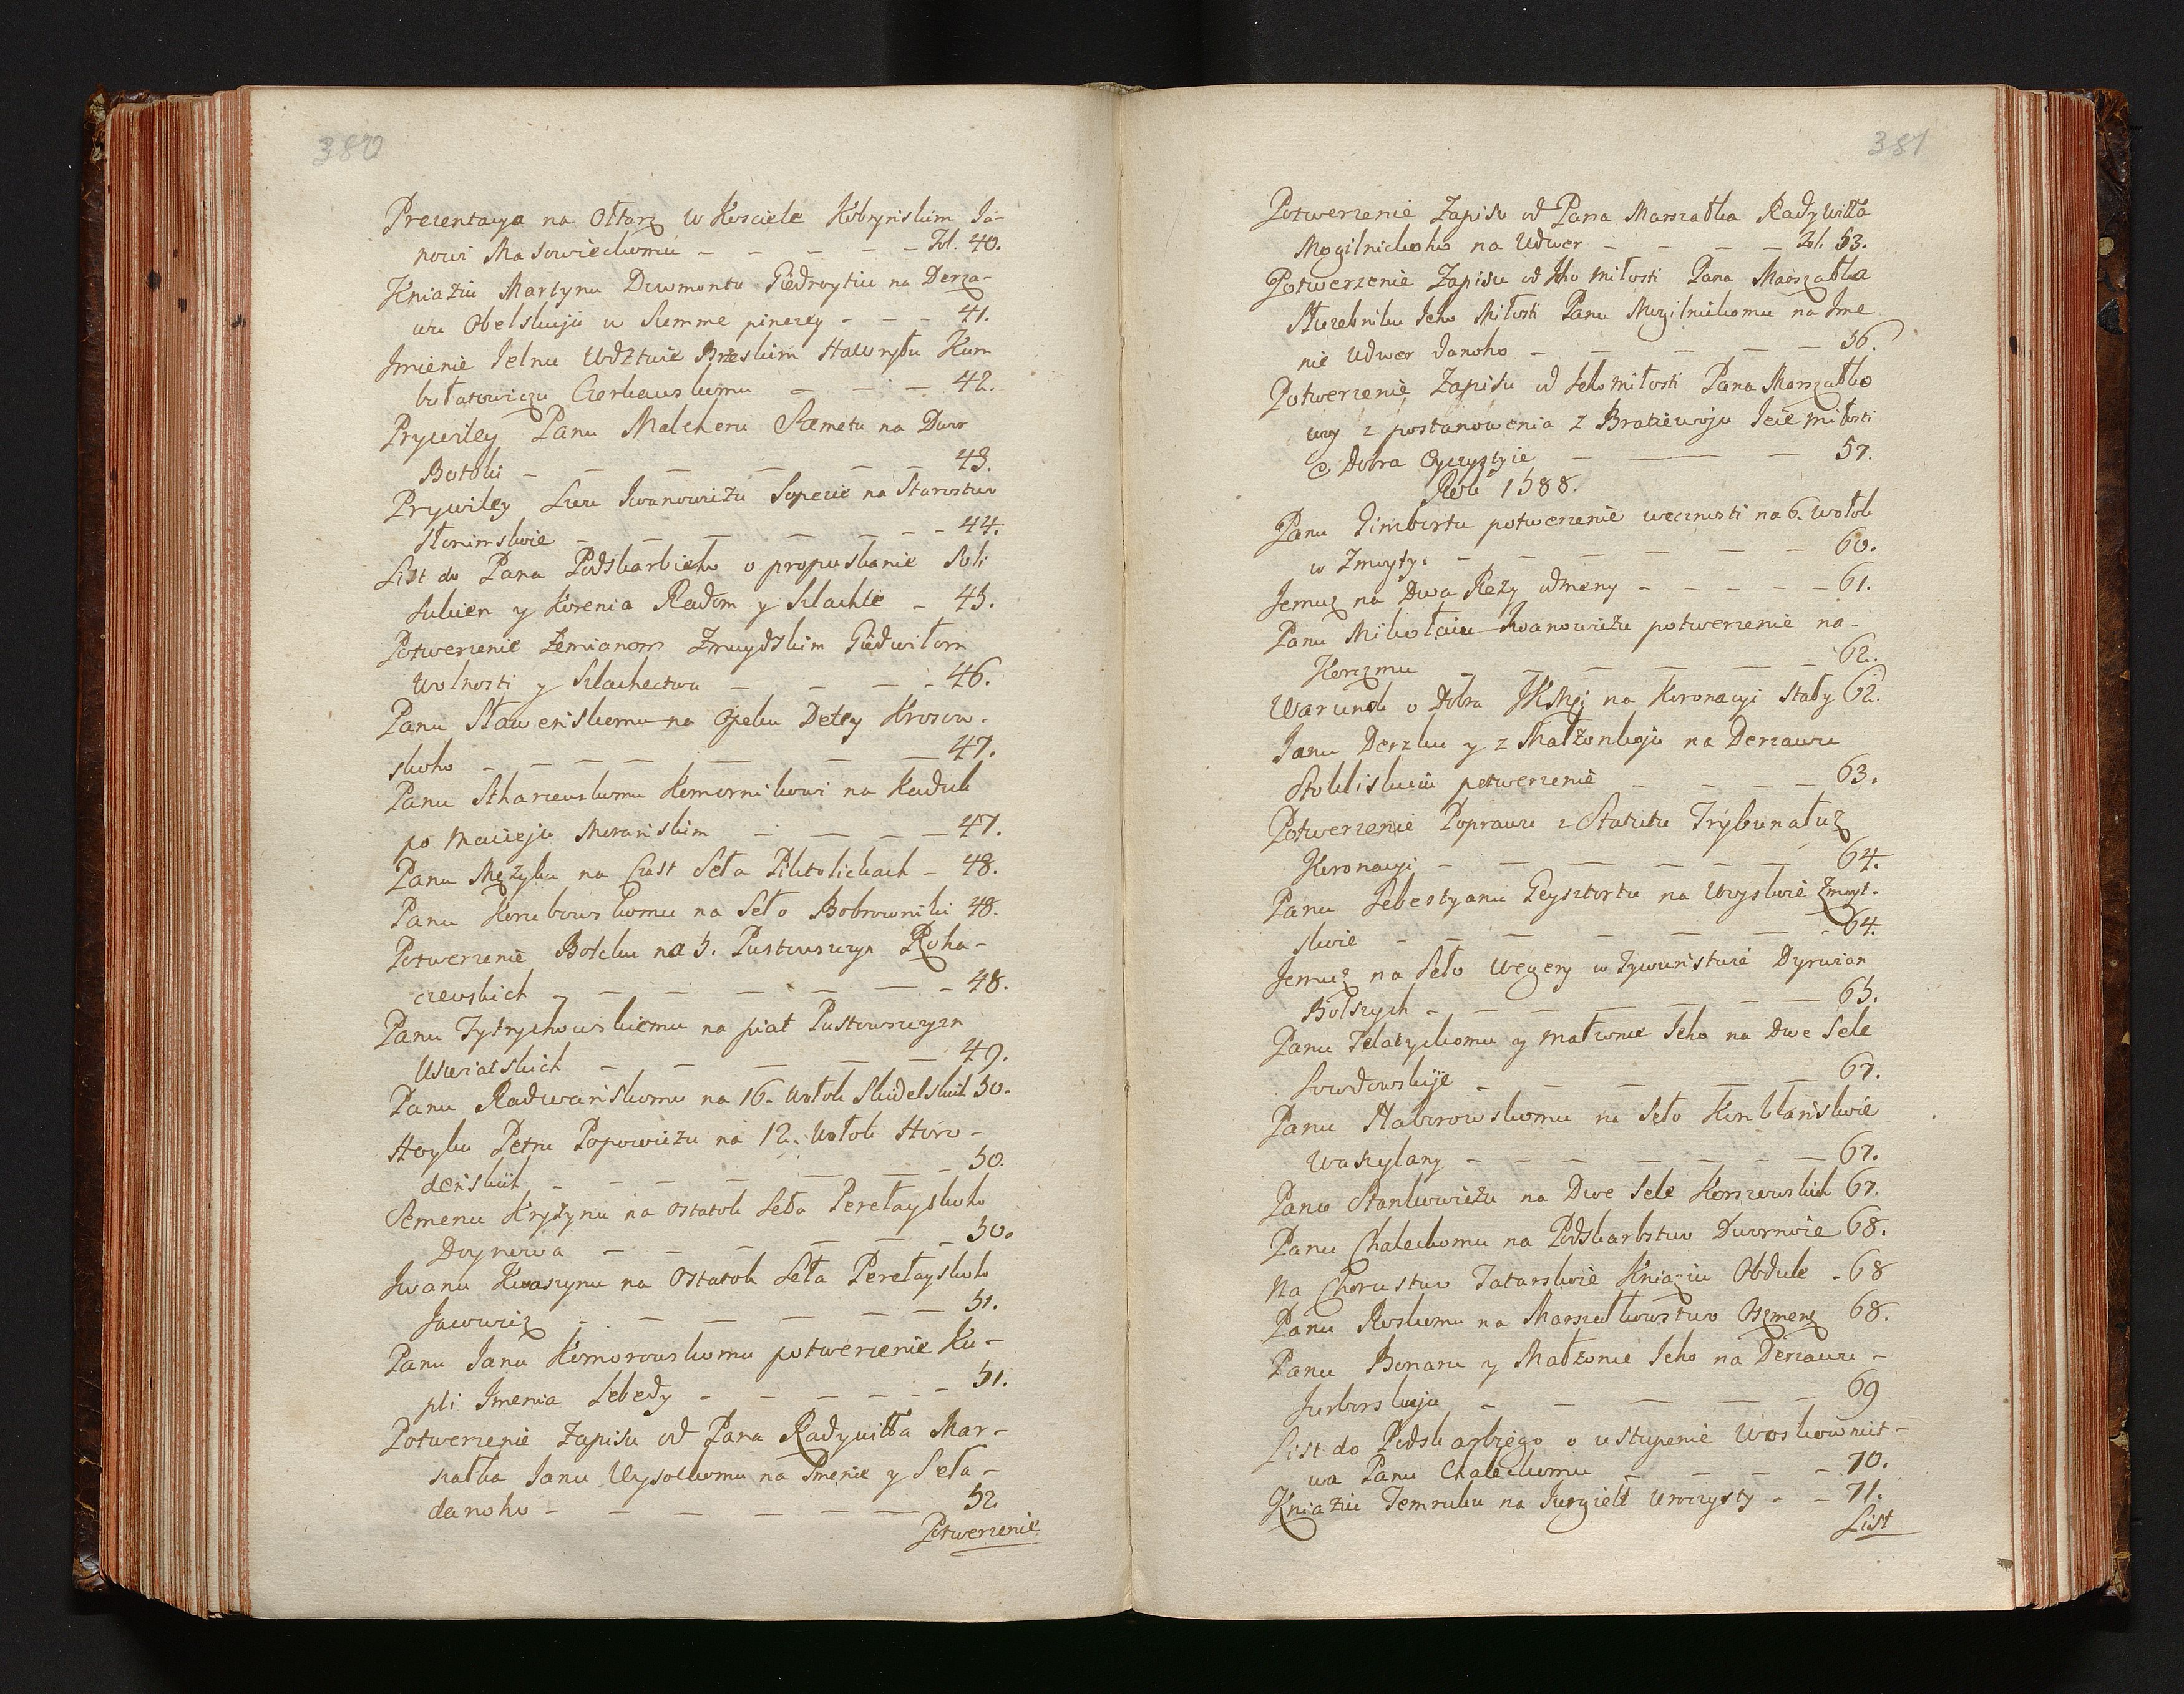 380
Prezentacya na Ołtarz w Kosciele Kobryńskim Ja-
nowi Masowieckomu - - - - Fol. 40.
Kniaziu Martynu Dowmontu Giedroytiu na Derża-
wu Obelskuju w Summe pinezey - - - 41.
Jmienie Jelnu Wdztwie Brzeskim Hawryłu Kum
bułatowiczu Czerkauskomu - - - 42.
Prywiley Panu Malcheru Szemetu na Dwor
Botoki - - - - - - 43.
Prywiley Lwu Iwanowiżu Sopezie na Starostwo
Słonimskoie - - - - - - 44.
List do Pana Podskarbieho o propuskanie Soli
Sukien y Korenia Radom y Szlachtie - 45.
Potwerzenie Zemianom Zmuydzkim Giedwiłom
Wolnosti y Szlachectwa - - - - 46.
Panu Sławenskomu na Opeku Detey Krosow-
skoho - - - - - - - 47.
Panu Stharzewskomu Komornikowi na Kaduk
po Macieju Moranskim - - - - 47.
Panu Mężyku na Czast Seła Piktolickach - 48.
Panu Korubowskomu na Seło Bobrowniki 48.
Potwerzenie Bołcku na 5. Pustowszczyn Roha-
czewskich - - - - - - - 48.
Panu Tytrychowskiemu na piat Pustowszczyzn
Uswiatskich - - - - - 49.
Panu Radwańskomu na 16. Wołok Skidelskich 50.
Hoyku Petru Popowiżu na 12. Wołok Horo-
denskich - - - - - - 50.
Semenu Kryżynu na Ostatok Seła Perełayskoho
Doynowa - - - - - - 50.
Jwanu Kwaszynu na Ostatok Seła Perełayskoho
Jacowicz - - - - - - 51.
Panu Janu Komorowskomu potwerzenie Ku-
pli Jmenia Lebedy - - - - - - 51.
Potwerzenie Zapisu od Pana Radywiłła Mar-
szałka Janu Wysockomu na Jmenie y Seła -
danoho - - - - - - - 52
Potwerzenie
381
Potwerzenie Zapisu od Pana Marszałka Radywiłła
Mogilnickoho na Udwer - - - - Fol. 53.
Potwerzenie Zapisu od Jho miłosti Pana Marszałka
Słuzebniku Jeho Miłosti Panu Mogilnickomu na Jme
nie Udwer Danoho - - - - - 56.
Potwerzenie Zapisu od Jeho miłosti Pana Marszałko
wey z postanowenia z Bratiewoju Jeie miłosti
o Dobra Oyczystyie - - - 57.
Roku 1588.
Panu Jimbortu potwerzenie weczności na 6. Wołok
w Zmoyty. - - - - - - 60.
Jemuż na Dwa Reży odmeny - - - - - 61.
Panu Mikołaiu Iwanowiżu potwerzenie na-
Korczmu - - - - - - 62.
Warunek o Dobra JKMsi na Koronacyi Stały 62.
Janu Derzku y z Małżonkoju na Derzawu
Stokliskuiu potwerzenie - - - - 63.
Potwerzenie Poprawu z Statutu Trybunałuz
Koronacyi - - - - - - 64.
Panu Sebestyanu Peysztortu na Woyskoie Zmoyt-
skoie - - - - - - - 64.
Jemuż na Seło Wegery w Tywuństwie Dyrwian
Bolszych - - - - - - 65.
Panu Zelatyckomu y małzonce Jeho na Dwe Sele
Sowdowskije - - - - - 67.
Panu Naborowskomu na Seło Konklańskoie
Waszylany - - - - - - - 67.
Panu Stankowiżu na Dwe Sele Korszewskich 67.
Panu Chaleckomu na Podskarbstwo Dwornoie 68.
Na Chorustwo Tatarskoie Kniaziu Obdule - 68
Panu Roskomu na Marszałkowstwo Oszmenz 68.
Panu Bonaru y Małzonie Jeho na Derzawu -
Jurborskuju - - - - - 69
List do Podskarbiego o ustupenie Woskownict-
wa Panu Chaleckomu - - - - 70.
Kniaziu Temruku na Jurgielt uroczysty - - 71.
List